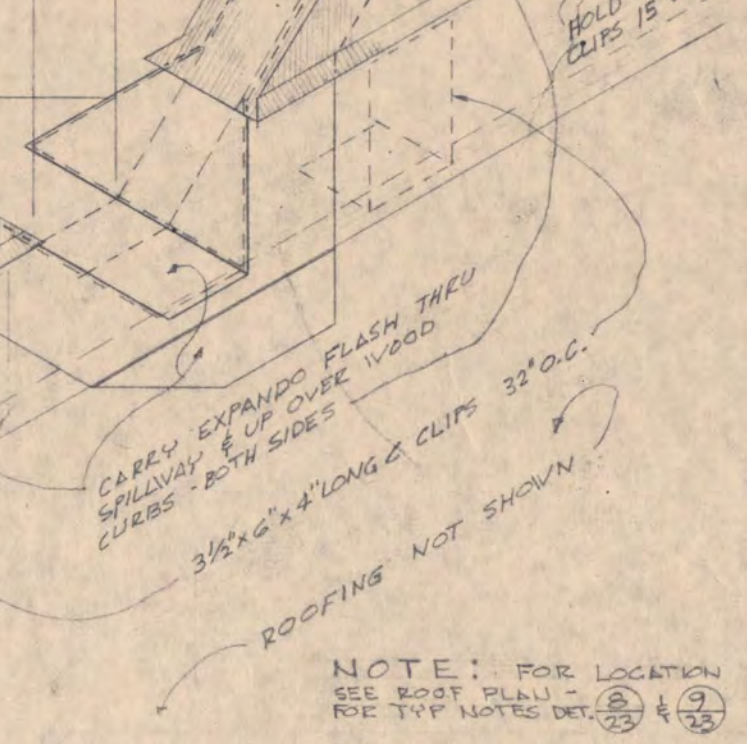 HOLD
CLIPS 15
CARRY EXPANDO FLASH THRU
SPILLWAY & UP OVER WOOD
CURBS - BOTH SIDES
3½" x 6" x 4" LONG ∠ CLIPS 32" O.C.
ROOFING NOT SHOWN
NOTE: FOR LOCATION
SEE ROOF PLAN -
FOR TYP NOTES DET. 8/23 & 9/23